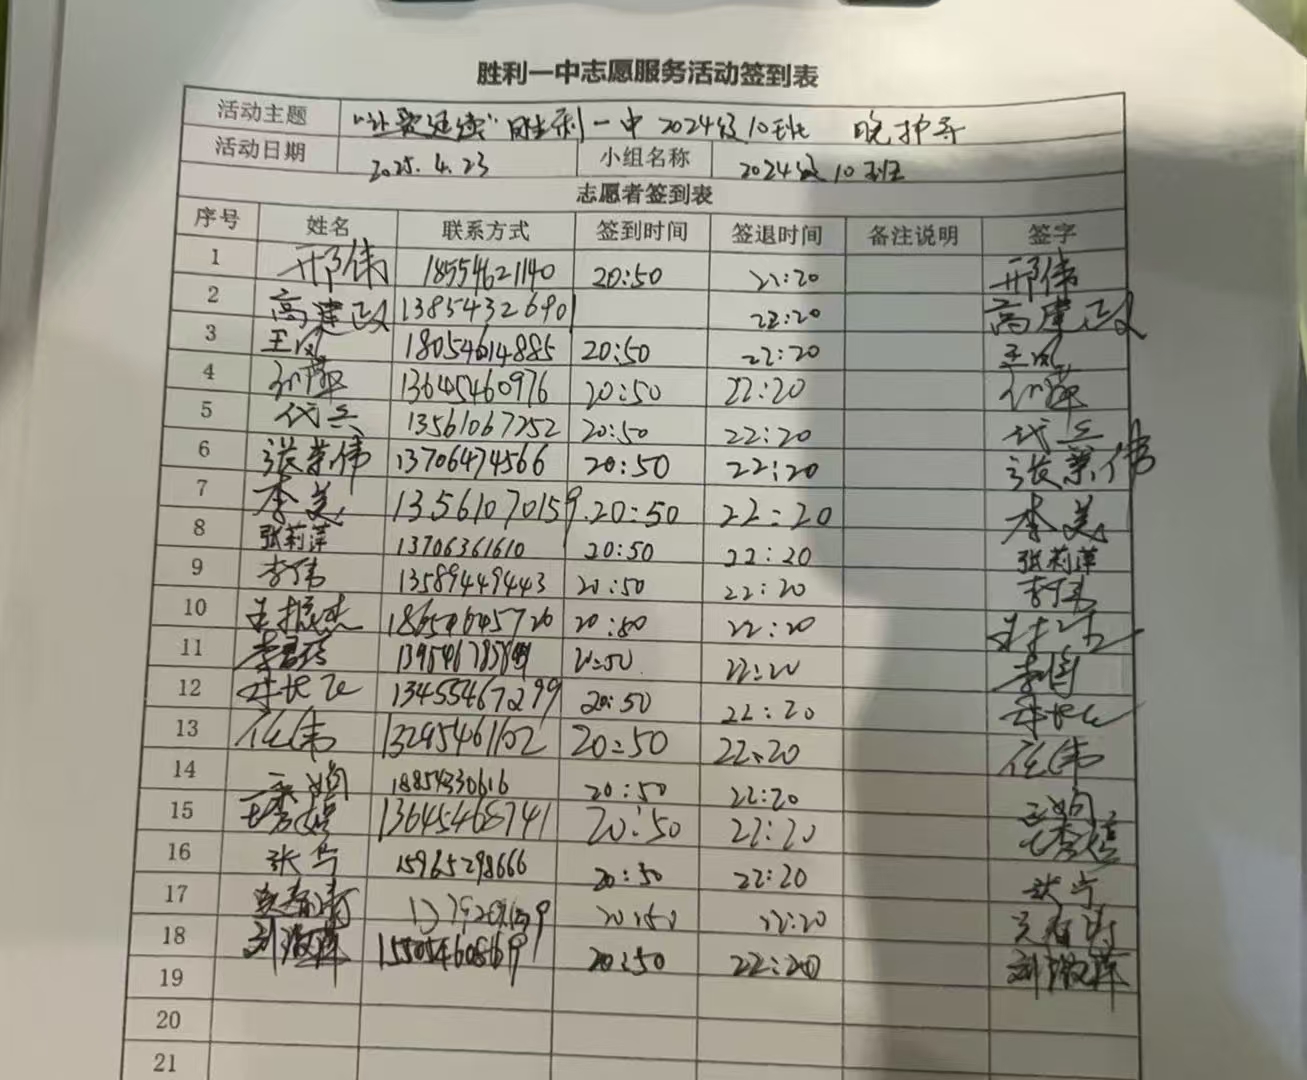 胜利一中志愿服务活动签到表
活动主题 "让爱延续"胜利一中2024级10班 晚护导
活动日期 2025.4.23 小组名称 2024级10班
志愿者签到表
序号 姓名 联系方式 签到时间 签退时间 备注说明 签字
1 邢伟 18554621140 20:50 22:20 邢伟
2 高建政 13854326901 22:20 高建政
3 王凤 18054614885 20:50 22:20 王凤
4 13645460976 20:50 22:20
5 代兵 13561067252 20:50 22:20 代兵
6 张荣伟 13706474566 20:50 22:20 张荣伟
7 李美 13561070159 20:50 22:20 李美
8 张莉萍 13706361610 20:50 22:20 张莉萍
9 李伟 13589449443 20:50 22:20 李伟
10 20:50 22:20
11 20:50 22:20
12 13455467299 20:50 22:20
13 任伟 13295461102 20:50 22:20 任伟
14 20:50 22:20
15 13645468741 20:50 22:20
16 15965298666 20:50 22:20
17 20:50 22:20
18 20:50 22:20
19
20
21